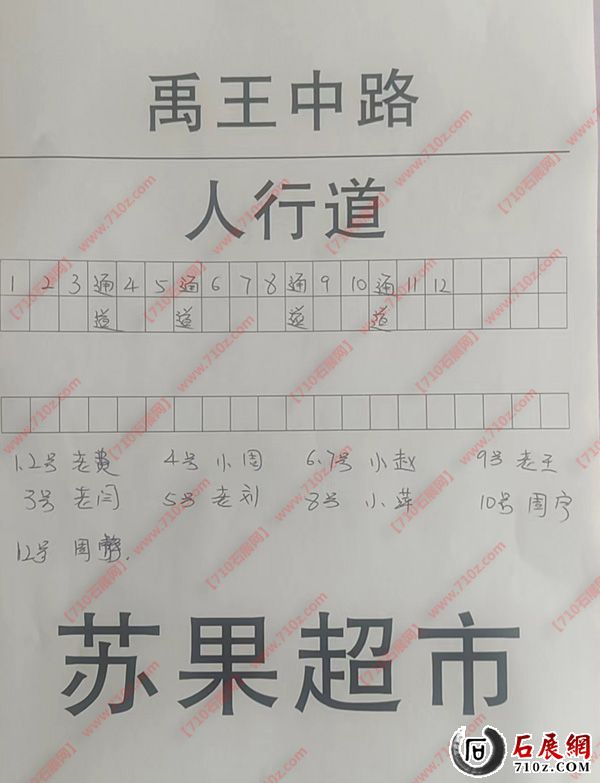 禹王中路
人行道
1 2 3 通 4 5 通 6 7 8 通 9 10 通 11 12
道 道 道 道
1.2号 老费 4号 小周 6.7号 小赵 9号 老王
3号 老闫 5号 老刘 8号 小萍 10号 周宇
12号 周
苏果超市
石展網
710z.COM
【710石展网】www.710z.com